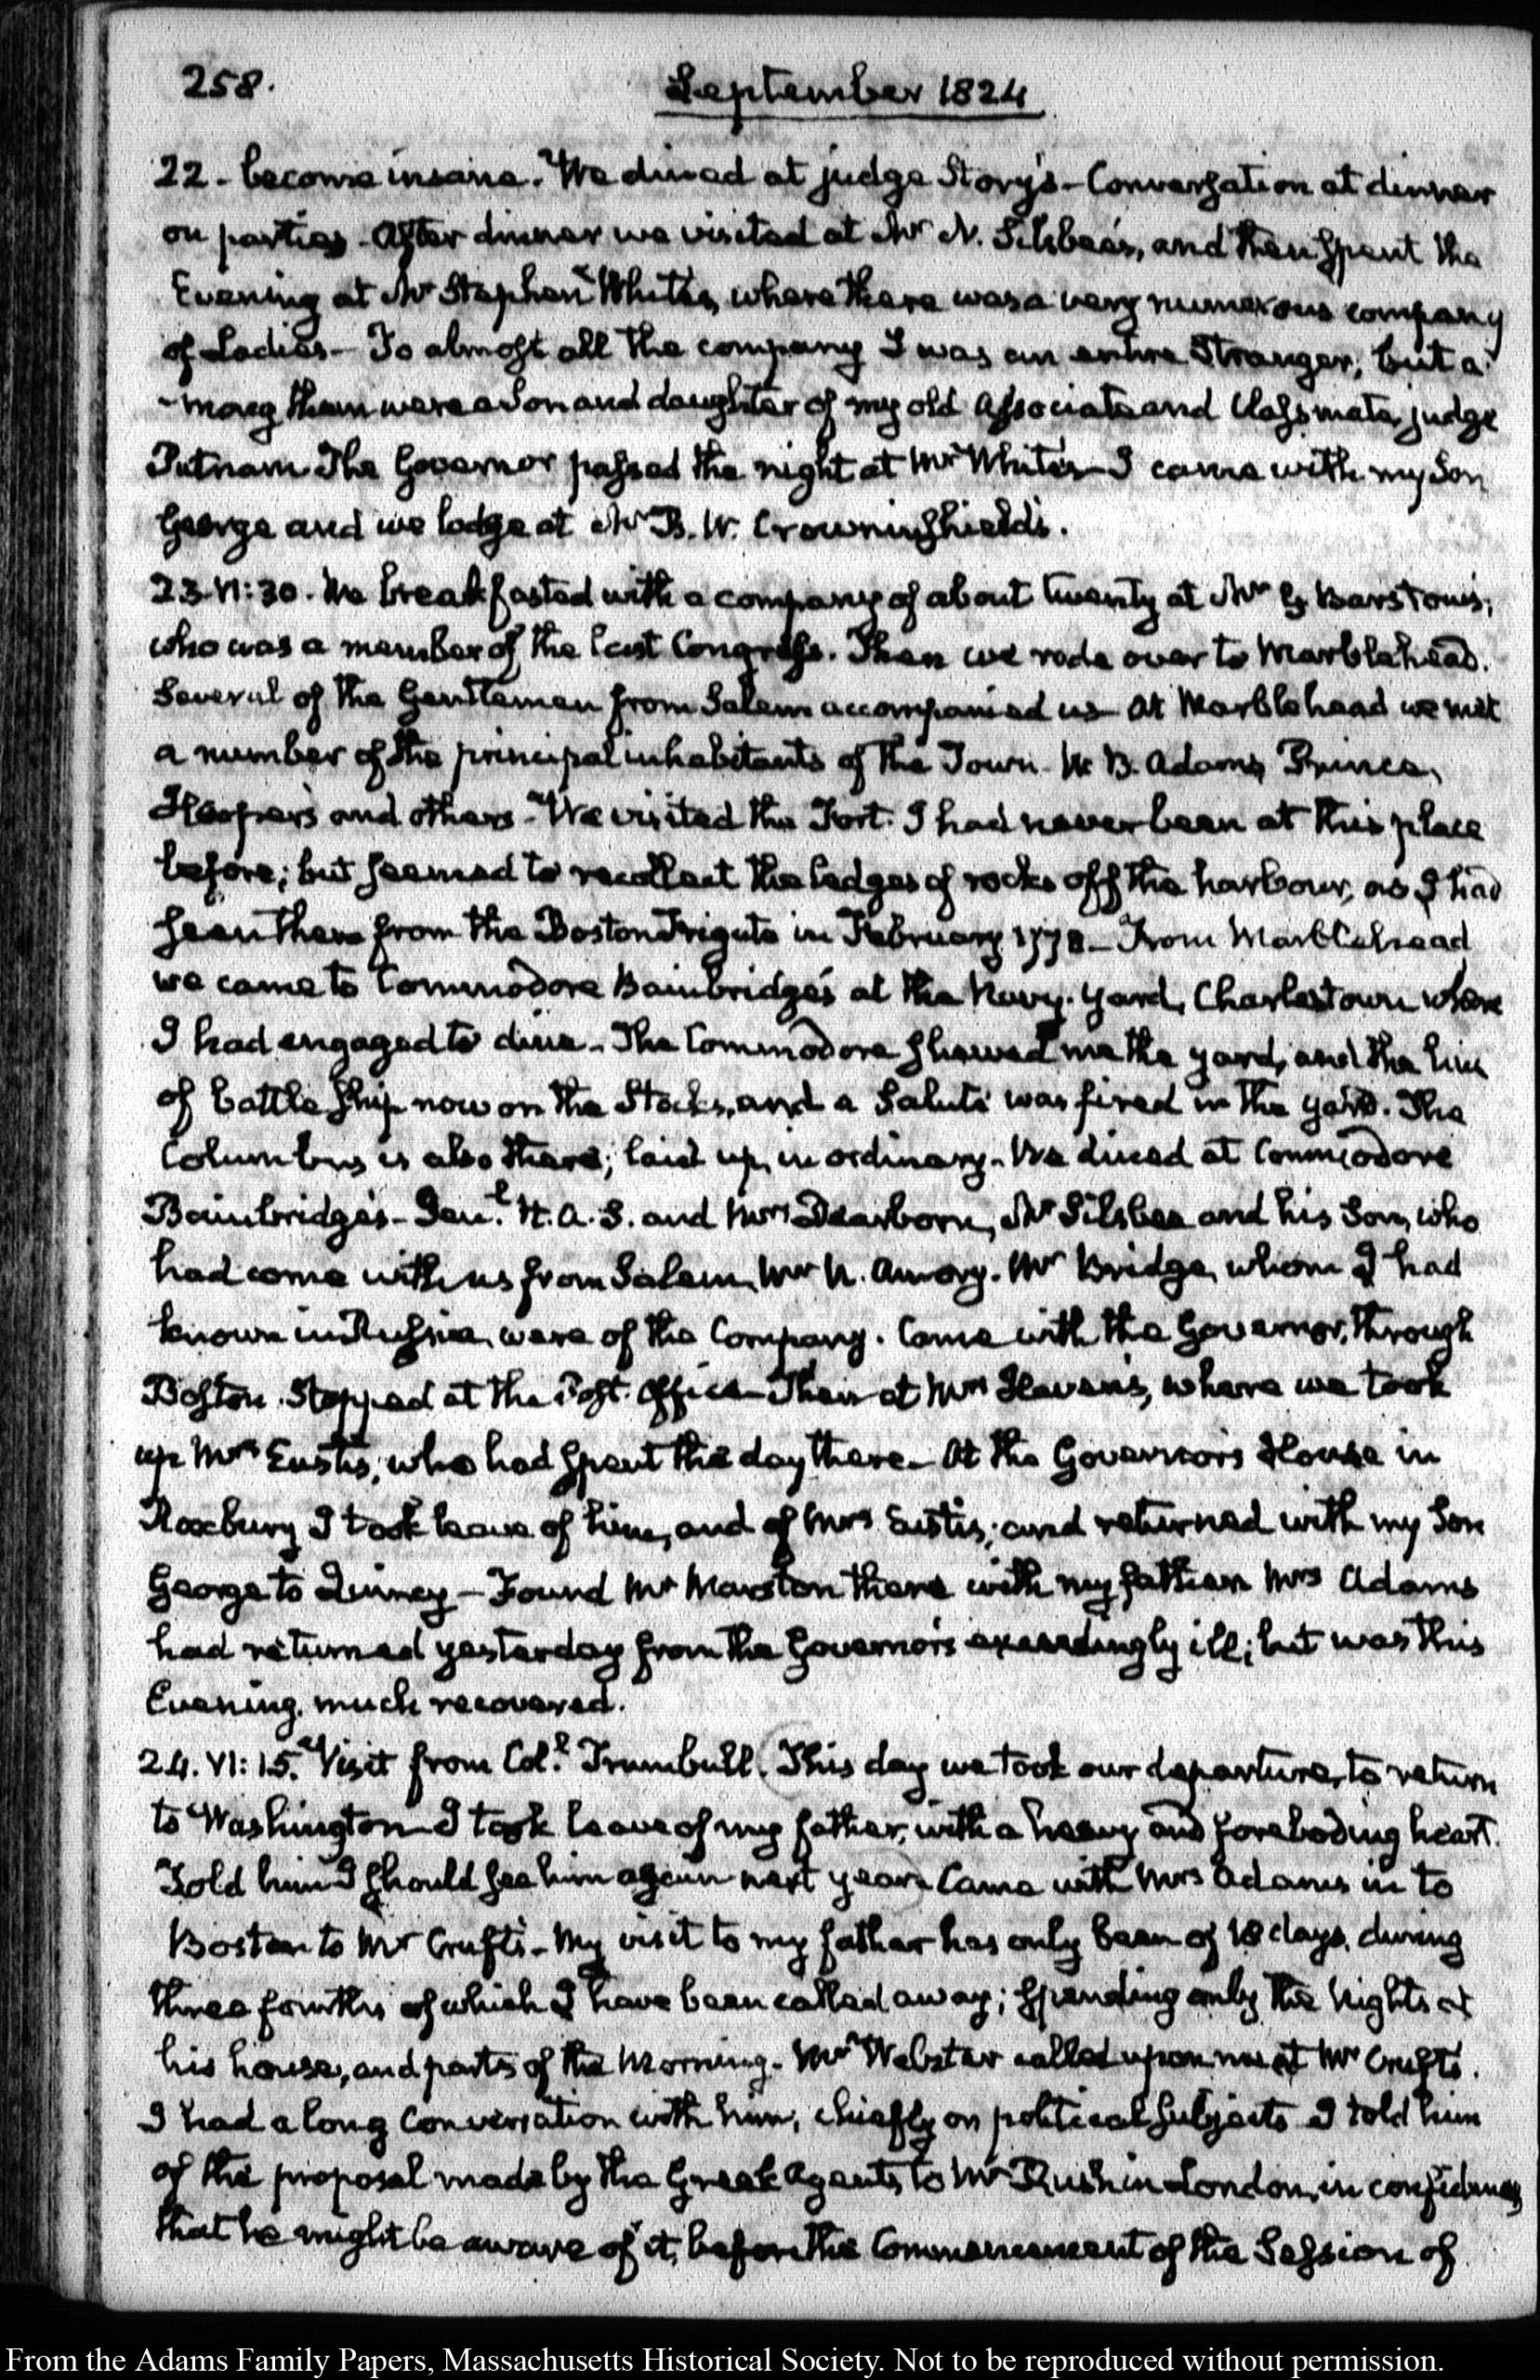 258.
September 1824
22 - become insane. We dined at judge Story's - Conversation at dinner
on parties - After dinner we visited at Mr N. Silsbee's, and then spent the
Evening at Mr Stephen White's, where there was a very numerous company
of Ladies - To almost all the company I was an entire Stranger, but a-
-mong them were a Son and daughter of my old Associate and Classmate, judge
Putnam. The Governor passed the night at Mr White's - I came with my Son
George and we lodge at Mr B. W. Crowninshield's.
23. VI:30. We breakfasted with a company of about twenty at Mr G Barstow's,
who was a member of the last Congress. Then we rode over to Marblehead.
Several of the Gentlemen from Salem accompanied us - At Marblehead we met
a number of the principal inhabitants of the Town - W. B. Adams, Prince,
Hooper's and others - We visited the Fort. I had never been at this place
before; but seemed to recollect the ledges of rocks off the harbour, as I had
seen them from the Boston Frigate in February 1778 - From Marblehead
we came to Commodore Bainbridge's at the Navy-Yard, Charlestown where
I had engaged to dine - The Commodore shewed me the yard, and the line
of battle Ship now on the Stocks, and a Salute was fired in the yard. The
Columbus is also there; laid up, in ordinary - We dined at Commodore
Bainbridge's - Genl. H. A. S. and Mrs Dearborn, Mr Silsbee and his Son, who
had come with us from Salem, Mr N. Amory. Mr Bridge, whom I had
known in Russia, were of the Company. Came with the Governor, through
Boston. Stopped at the Post-Office - Then at Mrs Haven's, where we took
up Mrs Eustis, who had spent the day there - At the Governor's House in
Roxbury I took leave of him, and of Mrs Eustis; and returned with my Son
George to Quincy - Found Mr Marston there with my father. Mrs Adams
had returned yesterday from the Governor's exceedingly ill; but was this
Evening, much recovered.
24. VI:15. Visit from Coll. Trumbull. This day we took our departure, to return
to Washington - I took leave of my father, with a heavy and foreboding heart.
Told him I should see him again next year. Came with Mrs Adams in to
Boston to Mr Cruft's - My visit to my father has only been of 18 days, during
three fourths of which I have been called away; spending only the Nights at
his house, and parts of the Morning. Mr Webster called upon me at Mr Cruft's.
I had a long Conversation with him, chiefly on political subjects - I told him
of the proposal made by the Greek Agents to Mr Rush in London, in confidence,
that he might be aware of it, before the Commencement of the Session of
From the Adams Family Papers, Massachusetts Historical Society. Not to be reproduced without permission.